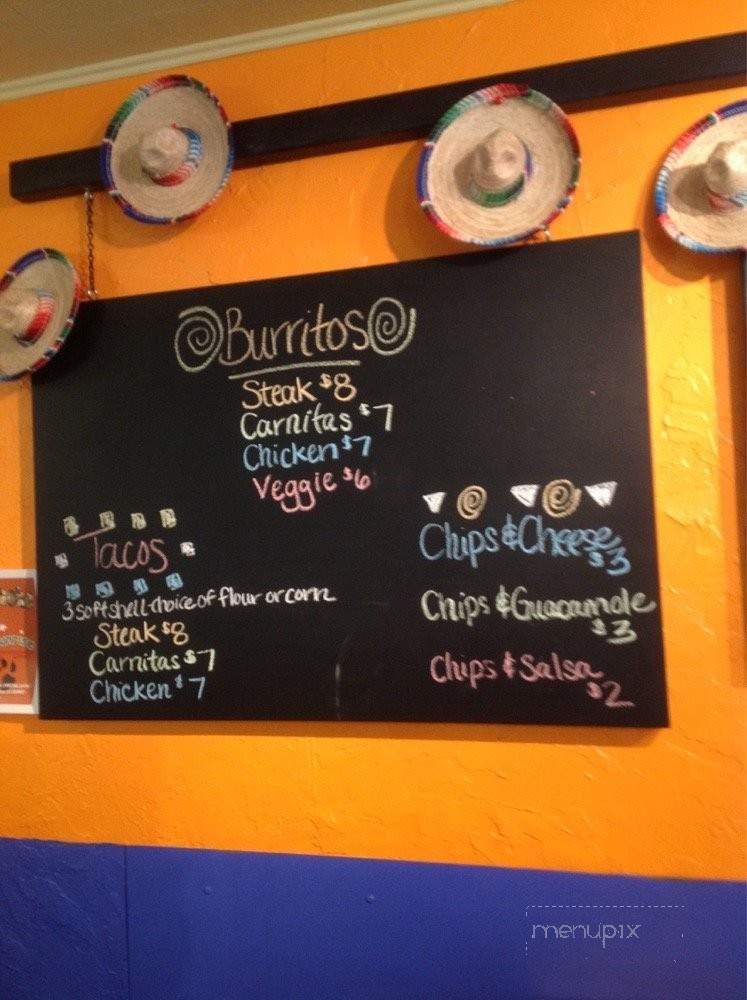 Burritos
Steak $8
Carnitas $7
Chicken $7
Veggie $6
Tacos
3 soft shell-choice of flour or corn
Steak $8
Carnitas $7
Chicken $7
Chips & Cheese
$3
Chips & Guacamole
$3
Chips & Salsa
$2
menupix